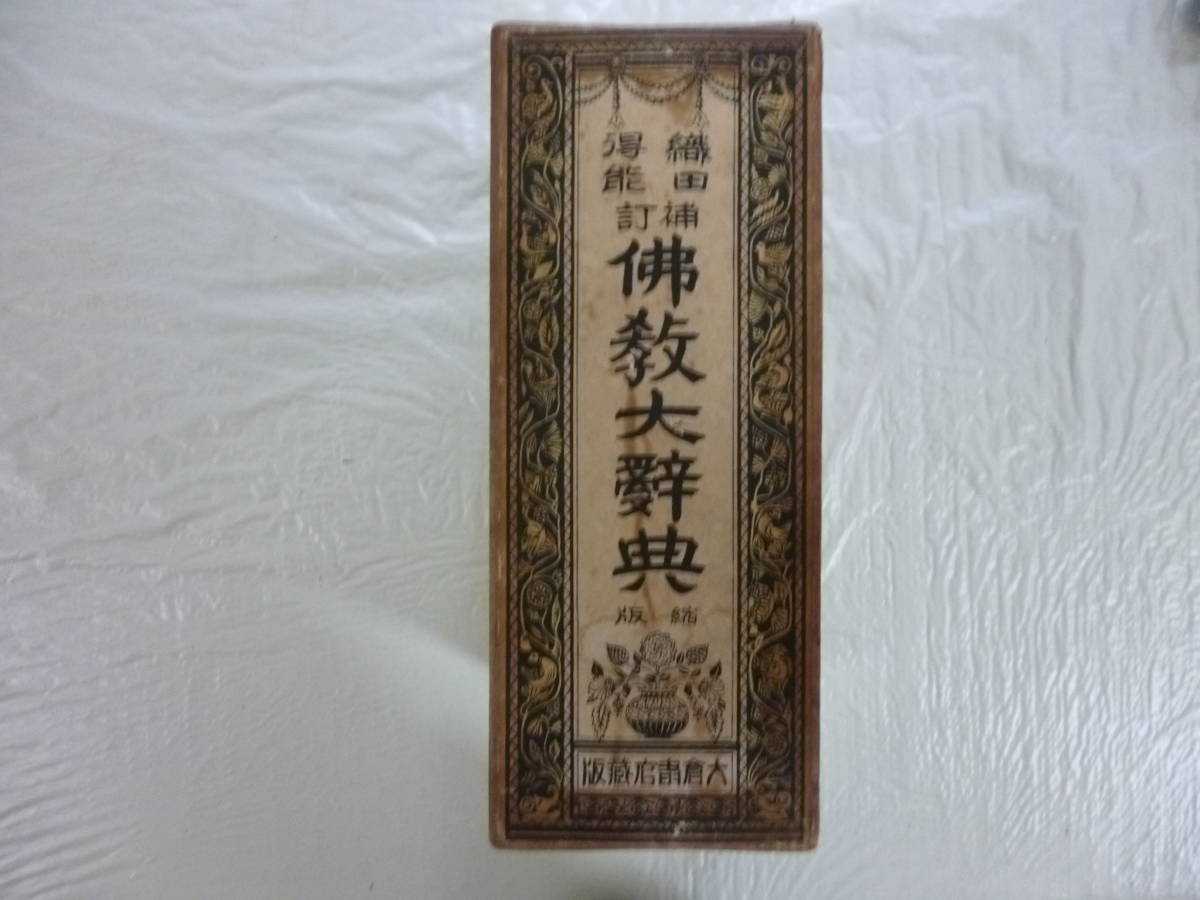 織田
得能
補訂
佛教大辭典
縮版
大倉書店藏版